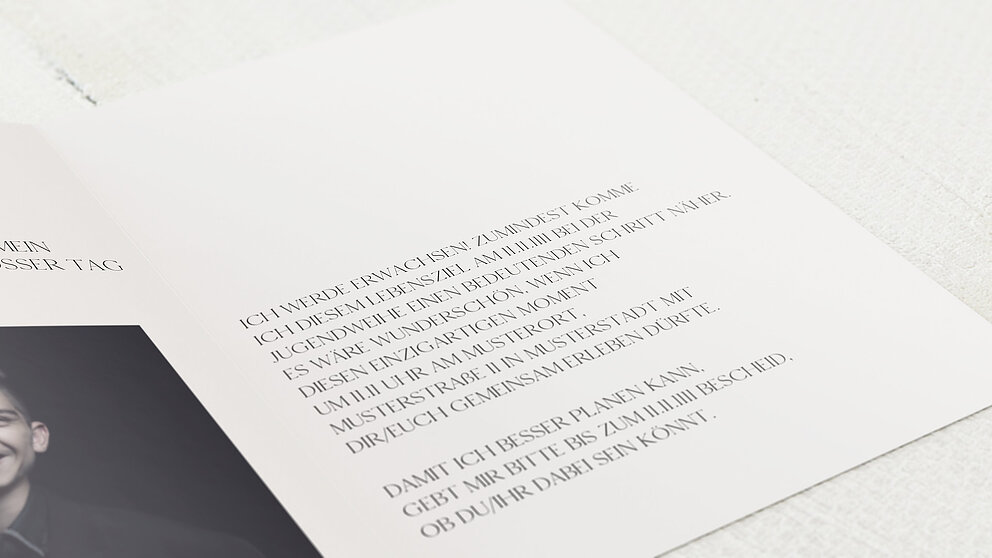 MEIN
OSSER TAG
ICH WERDE ERWACHSEN! ZUMINDEST KOMME
ICH DIESEM LEBENSZIEL AM 11.11.1111 BEI DER
JUGENDWEIHE EINEN BEDEUTENDEN SCHRITT NÄHER.
ES WÄRE WUNDERSCHÖN, WENN ICH
DIESEN EINZIGARTIGEN MOMENT
UM 11.11 UHR AM MUSTERORT,
MUSTERSTRAßE 11 IN MUSTERSTADT MIT
DIR/EUCH GEMEINSAM ERLEBEN DÜRFTE.
DAMIT ICH BESSER PLANEN KANN,
GEBT MIR BITTE BIS ZUM 11.11.1111 BESCHEID,
OB DU/IHR DABEI SEIN KÖNNT .